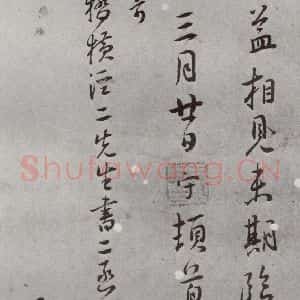 益相見未期臨
三月廿日守頓首
橫涇二先生書二函
Shufawang.CN